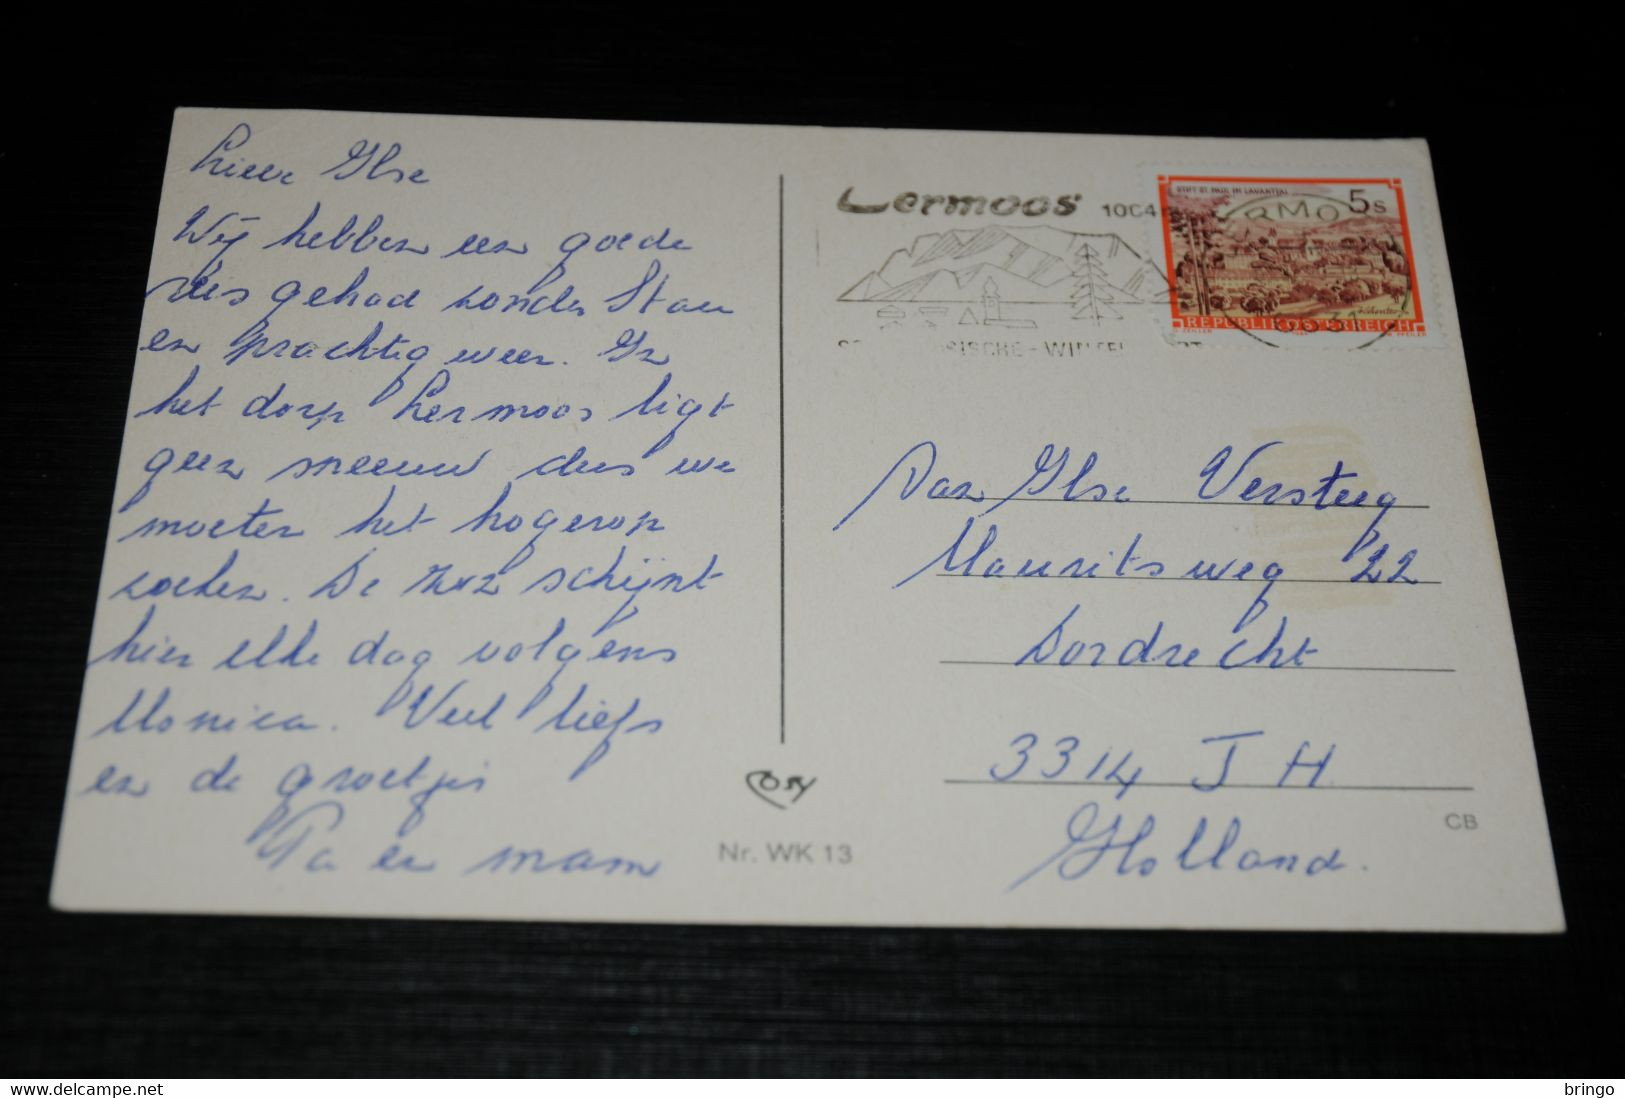 Lieve Ilse
Wij hebben een goede
reis gehad zonder Stau
en prachtig weer. In
het dorp Lermoos ligt
geen sneeuw dus we
moeten het hogerop
zoeken. De zon schijnt
hier elke dag volgens
Monica. Veel liefs
en de groetjes
Pa en mam
Lermoos
STIFT ST. PAUL IM LAVANTTAL
5s
REPUBLIK ÖSTERREICH
Aan Ilse Versteeg
Mauritsweg 22
Dordrecht
3314 JH
Holland.
COSY
Nr. WK 13
CB
bringo
delcampe.net